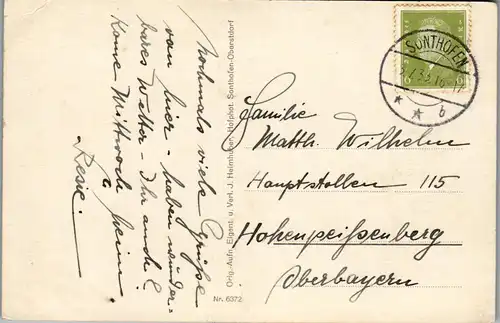 nochmals viele Grüße
von hier – haben wunder=
bares Wetter – Ihr auch?
Kome Mittwoch heim
Resie.
Orig.-Aufn. Eigent. u. Verl. J. Heimhuber, Hofphot. Sonthofen-Oberstdorf
Nr. 6372
SONTHOFEN
b
Familie
Matth. Wilhelm
Hauptstollen 115
Hohenpeißenberg
Oberbayern